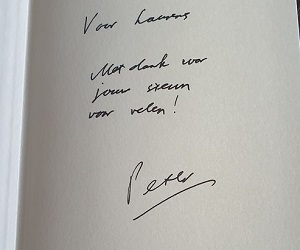 Voor Laurens
Met dank voor
jouw steun
voor velen!
Peter